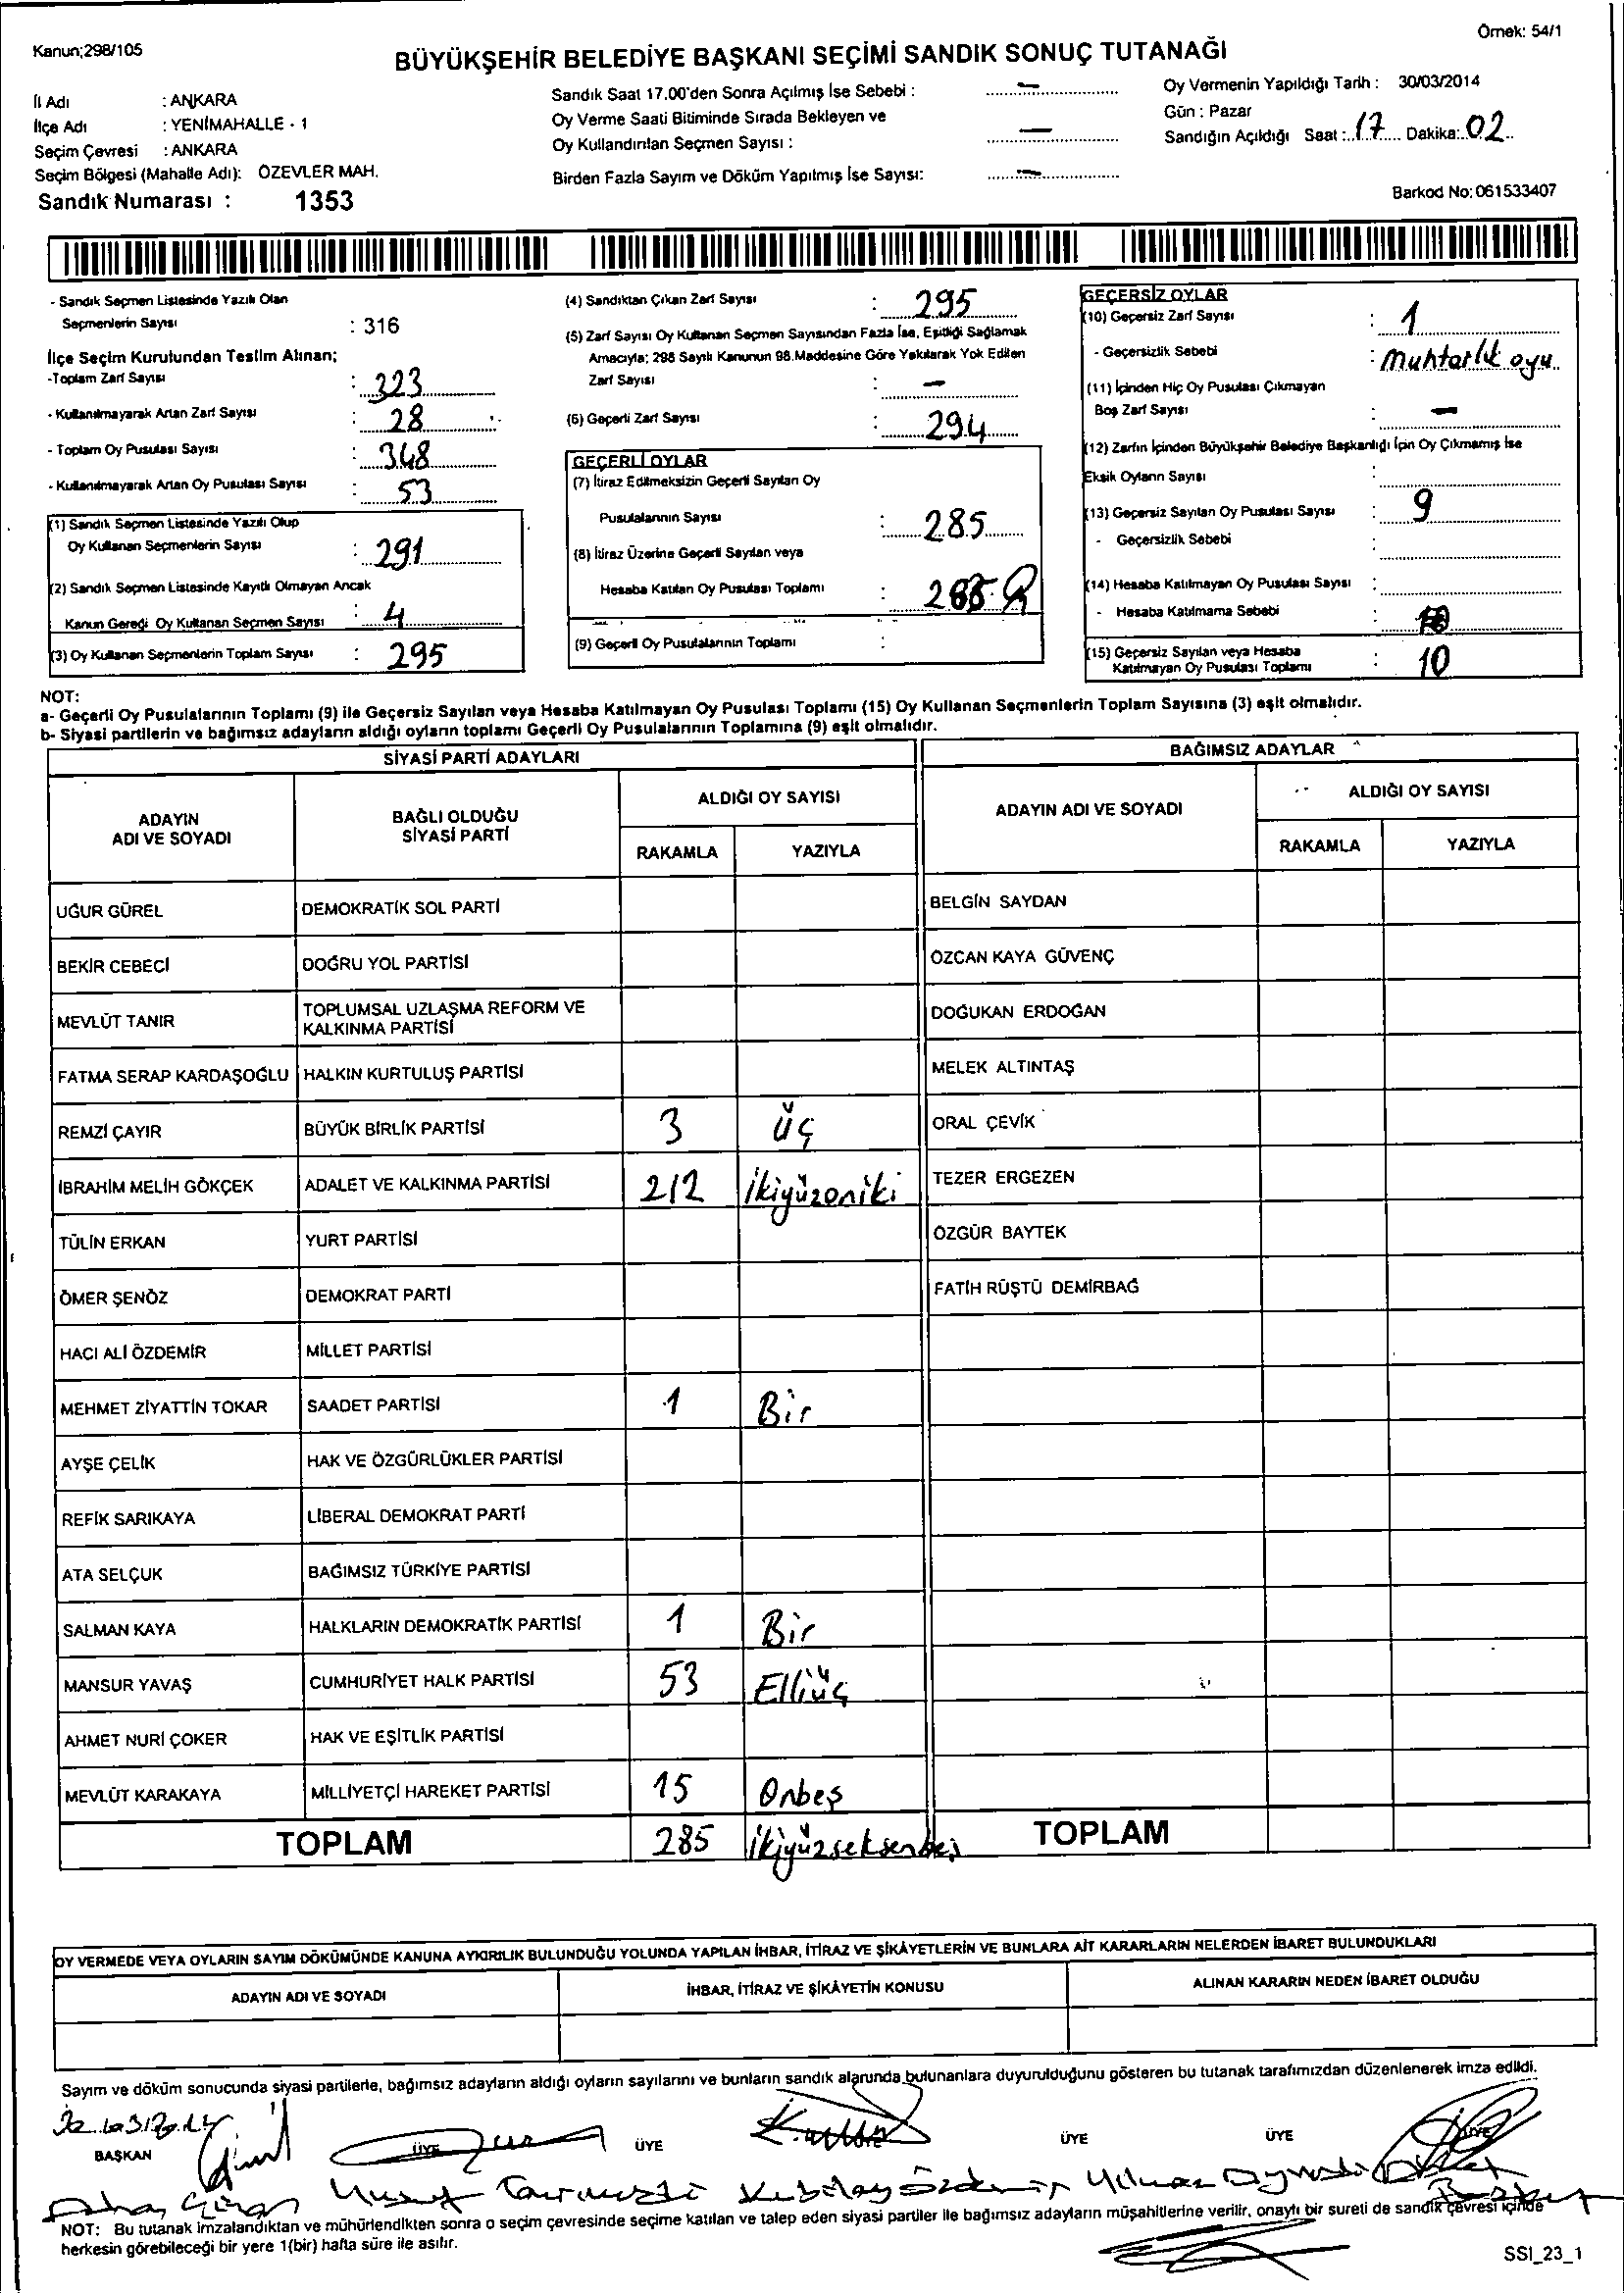 Kanun;298/105
Örnek: 54/1
BÜYÜKŞEHİR BELEDİYE BAŞKANI SEÇİMİ SANDIK SONUÇ TUTANAĞI
İl Adı : ANKARA
İlçe Adı : YENİMAHALLE - 1
Seçim Çevresi : ANKARA
Seçim Bölgesi (Mahalle Adı): ÖZEVLER MAH.
Sandık Numarası : 1353
Sandık Saat 17.00'den Sonra Açılmış İse Sebebi : —
Oy Verme Saati Bitiminde Sırada Bekleyen ve
Oy Kullandırılan Seçmen Sayısı : —
Birden Fazla Sayım ve Döküm Yapılmış İse Sayısı: —
Oy Vermenin Yapıldığı Tarih : 30/03/2014
Gün : Pazar
Sandığın Açıldığı Saat : 17 Dakika: 02
Barkod No: 061533407
- Sandık Seçmen Listesinde Yazılı Olan
Seçmenlerin Sayısı : 316
İlçe Seçim Kurulundan Teslim Alınan;
-Toplam Zarf Sayısı : 323
- Kullanılmayarak Artan Zarf Sayısı : 28
- Toplam Oy Pusulası Sayısı : 348
- Kullanılmayarak Artan Oy Pusulası Sayısı : 53
(1) Sandık Seçmen Listesinde Yazılı Olup
Oy Kullanan Seçmenlerin Sayısı : 291
(2) Sandık Seçmen Listesinde Kayıtlı Olmayan Ancak
Kanun Gereği Oy Kullanan Seçmen Sayısı : 4
(3) Oy Kullanan Seçmenlerin Toplam Sayısı : 295
(4) Sandıktan Çıkan Zarf Sayısı : 295
(5) Zarf Sayısı Oy Kullanan Seçmen Sayısından Fazla İse, Eşitliği Sağlamak
Amacıyla; 298 Sayılı Kanunun 98.Maddesine Göre Yakılarak Yok Edilen
Zarf Sayısı : —
(6) Geçerli Zarf Sayısı : 294
GEÇERLİ OYLAR
(7) İtiraz Edilmeksizin Geçerli Sayılan Oy
Pusulalarının Sayısı : 285
(8) İtiraz Üzerine Geçerli Sayılan veya
Hesaba Katılan Oy Pusulası Toplamı :
(9) Geçerli Oy Pusulalarının Toplamı :
GEÇERSİZ OYLAR
(10) Geçersiz Zarf Sayısı : 1
- Geçersizlik Sebebi : Muhtarlık oyu
(11) İçinden Hiç Oy Pusulası Çıkmayan
Boş Zarf Sayısı : —
(12) Zarfın İçinden Büyükşehir Belediye Başkanlığı İçin Oy Çıkmamış İse
Eksik Oyların Sayısı :
(13) Geçersiz Sayılan Oy Pusulası Sayısı : 9
- Geçersizlik Sebebi :
(14) Hesaba Katılmayan Oy Pusulası Sayısı :
- Hesaba Katılmama Sebebi :
(15) Geçersiz Sayılan veya Hesaba
Katılmayan Oy Pusulası Toplamı : 10
NOT:
a- Geçerli Oy Pusulalarının Toplamı (9) ile Geçersiz Sayılan veya Hesaba Katılmayan Oy Pusulası Toplamı (15) Oy Kullanan Seçmenlerin Toplam Sayısına (3) eşit olmalıdır.
b- Siyasi partilerin ve bağımsız adayların aldığı oyların toplamı Geçerli Oy Pusulalarının Toplamına (9) eşit olmalıdır.
SİYASİ PARTİ ADAYLARI
BAĞIMSIZ ADAYLAR
ADAYIN ADI VE SOYADI
BAĞLI OLDUĞU SİYASİ PARTİ
ALDIĞI OY SAYISI
RAKAMLA YAZIYLA
ADAYIN ADI VE SOYADI
ALDIĞI OY SAYISI
RAKAMLA YAZIYLA
UĞUR GÜREL DEMOKRATİK SOL PARTİ BELGİN SAYDAN
BEKİR CEBECİ DOĞRU YOL PARTİSİ ÖZCAN KAYA GÜVENÇ
MEVLÜT TANIR TOPLUMSAL UZLAŞMA REFORM VE KALKINMA PARTİSİ DOĞUKAN ERDOĞAN
FATMA SERAP KARDAŞOĞLU HALKIN KURTULUŞ PARTİSİ MELEK ALTINTAŞ
REMZİ ÇAYIR BÜYÜK BİRLİK PARTİSİ 3 Üç ORAL ÇEVİK
İBRAHİM MELİH GÖKÇEK ADALET VE KALKINMA PARTİSİ 212 İkiyüzoniki TEZER ERGEZEN
TÜLİN ERKAN YURT PARTİSİ ÖZGÜR BAYTEK
ÖMER ŞENÖZ DEMOKRAT PARTİ FATİH RÜŞTÜ DEMİRBAĞ
HACI ALİ ÖZDEMİR MİLLET PARTİSİ
MEHMET ZİYATTİN TOKAR SAADET PARTİSİ 1 Bir
AYŞE ÇELİK HAK VE ÖZGÜRLÜKLER PARTİSİ
REFİK SARIKAYA LİBERAL DEMOKRAT PARTİ
ATA SELÇUK BAĞIMSIZ TÜRKİYE PARTİSİ
SALMAN KAYA HALKLARIN DEMOKRATİK PARTİSİ 1 Bir
MANSUR YAVAŞ CUMHURİYET HALK PARTİSİ 53 Elliüç
AHMET NURİ ÇOKER HAK VE EŞİTLİK PARTİSİ
MEVLÜT KARAKAYA MİLLİYETÇİ HAREKET PARTİSİ 15 Onbeş
TOPLAM 285 İkiyüzseksenbeş TOPLAM
OY VERMEDE VEYA OYLARIN SAYIM DÖKÜMÜNDE KANUNA AYKIRILIK BULUNDUĞU YOLUNDA YAPILAN İHBAR, İTİRAZ VE ŞİKÂYETLERİN VE BUNLARA AİT KARARLARIN NELERDEN İBARET BULUNDUKLARI
ADAYIN ADI VE SOYADI İHBAR, İTİRAZ VE ŞİKÂYETİN KONUSU ALINAN KARARIN NEDEN İBARET OLDUĞU
Sayım ve döküm sonucunda siyasi partilerle, bağımsız adayların aldığı oyların sayılarını ve bunların sandık alanında bulunanlara duyurulduğunu gösteren bu tutanak tarafımızdan düzenlenerek imza edildi.
BAŞKAN ÜYE ÜYE ÜYE ÜYE ÜYE
NOT: Bu tutanak imzalandıktan ve mühürlendikten sonra o seçim çevresinde seçime katılan ve talep eden siyasi partiler ile bağımsız adayların müşahitlerine verilir, onaylı bir sureti de sandık çevresi içinde
herkesin görebileceği bir yere 1(bir) hafta süre ile asılır.
SSI_23_1